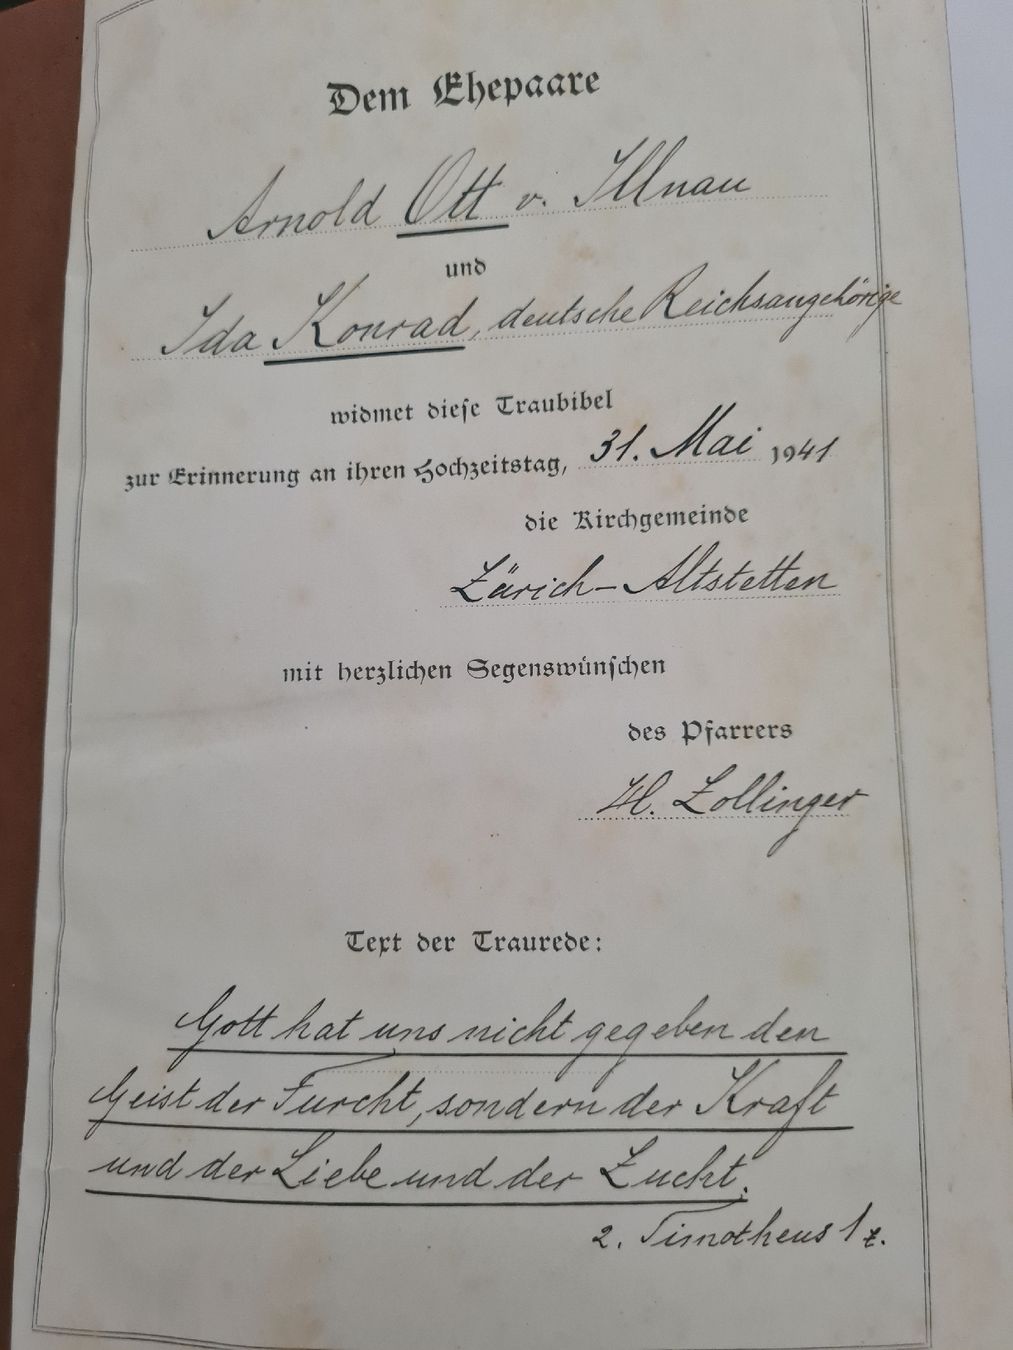 Dem Ehepaare
Arnold Ott v. Illnau
und
Ida Konrad, deutsche Reichsangehörige
widmet diese Traubibel
zur Erinnerung an ihren Hochzeitstag, 31. Mai 1941
die Kirchgemeinde
Zürich-Altstetten
mit herzlichen Segenswünschen
des Pfarrers
H. Zollinger
Text der Traurede:
Gott hat uns nicht gegeben den
Geist der Furcht, sondern der Kraft
und der Liebe und der Zucht.
2. Timotheus 1 7.